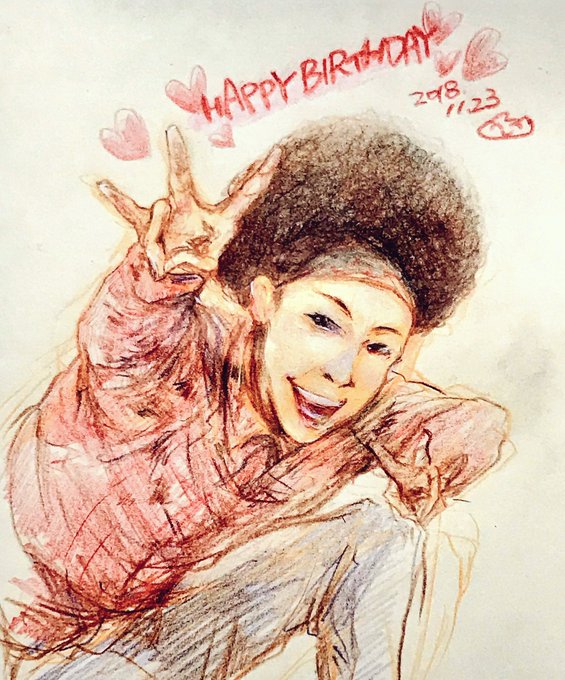 HAPPY BIRTHDAY
2018.
11.23